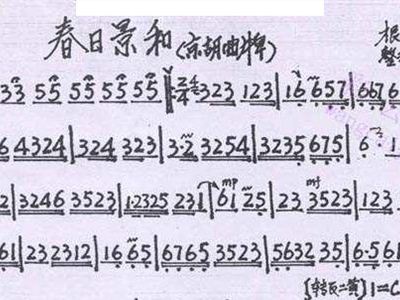 春日景和(京胡曲牌) 根
整
33 55 55 55 55 | 2/4 4323 123 | 16 657 | 667 6
6 4324 | 324 323 | 3·2 3254 | 3235 675 | 6· 1
2 | 3246 3523 | 1·2325 231 | 61 25 | 23 3523 | 123
mp mf
61 | 23 2312 | 16 65 | 6765 3523 | 5632 35 | 6·561
[转反二黄] 1=C